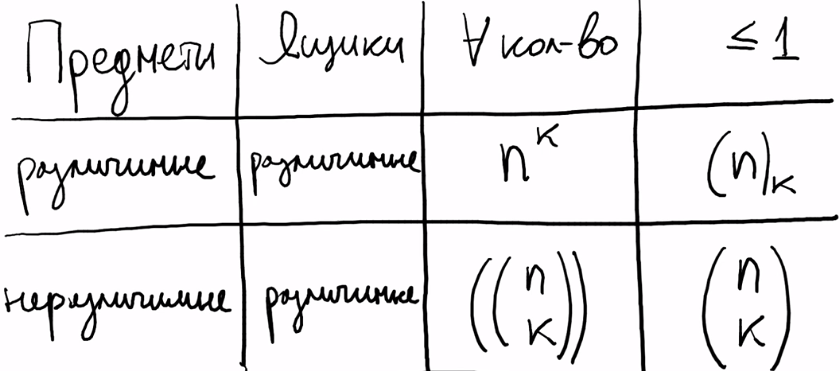 Предмети Ящики ∀ кол-во ≤ 1
различимые различимые n^к (n)_к
неразличимые различимые ((n к)) (n к)